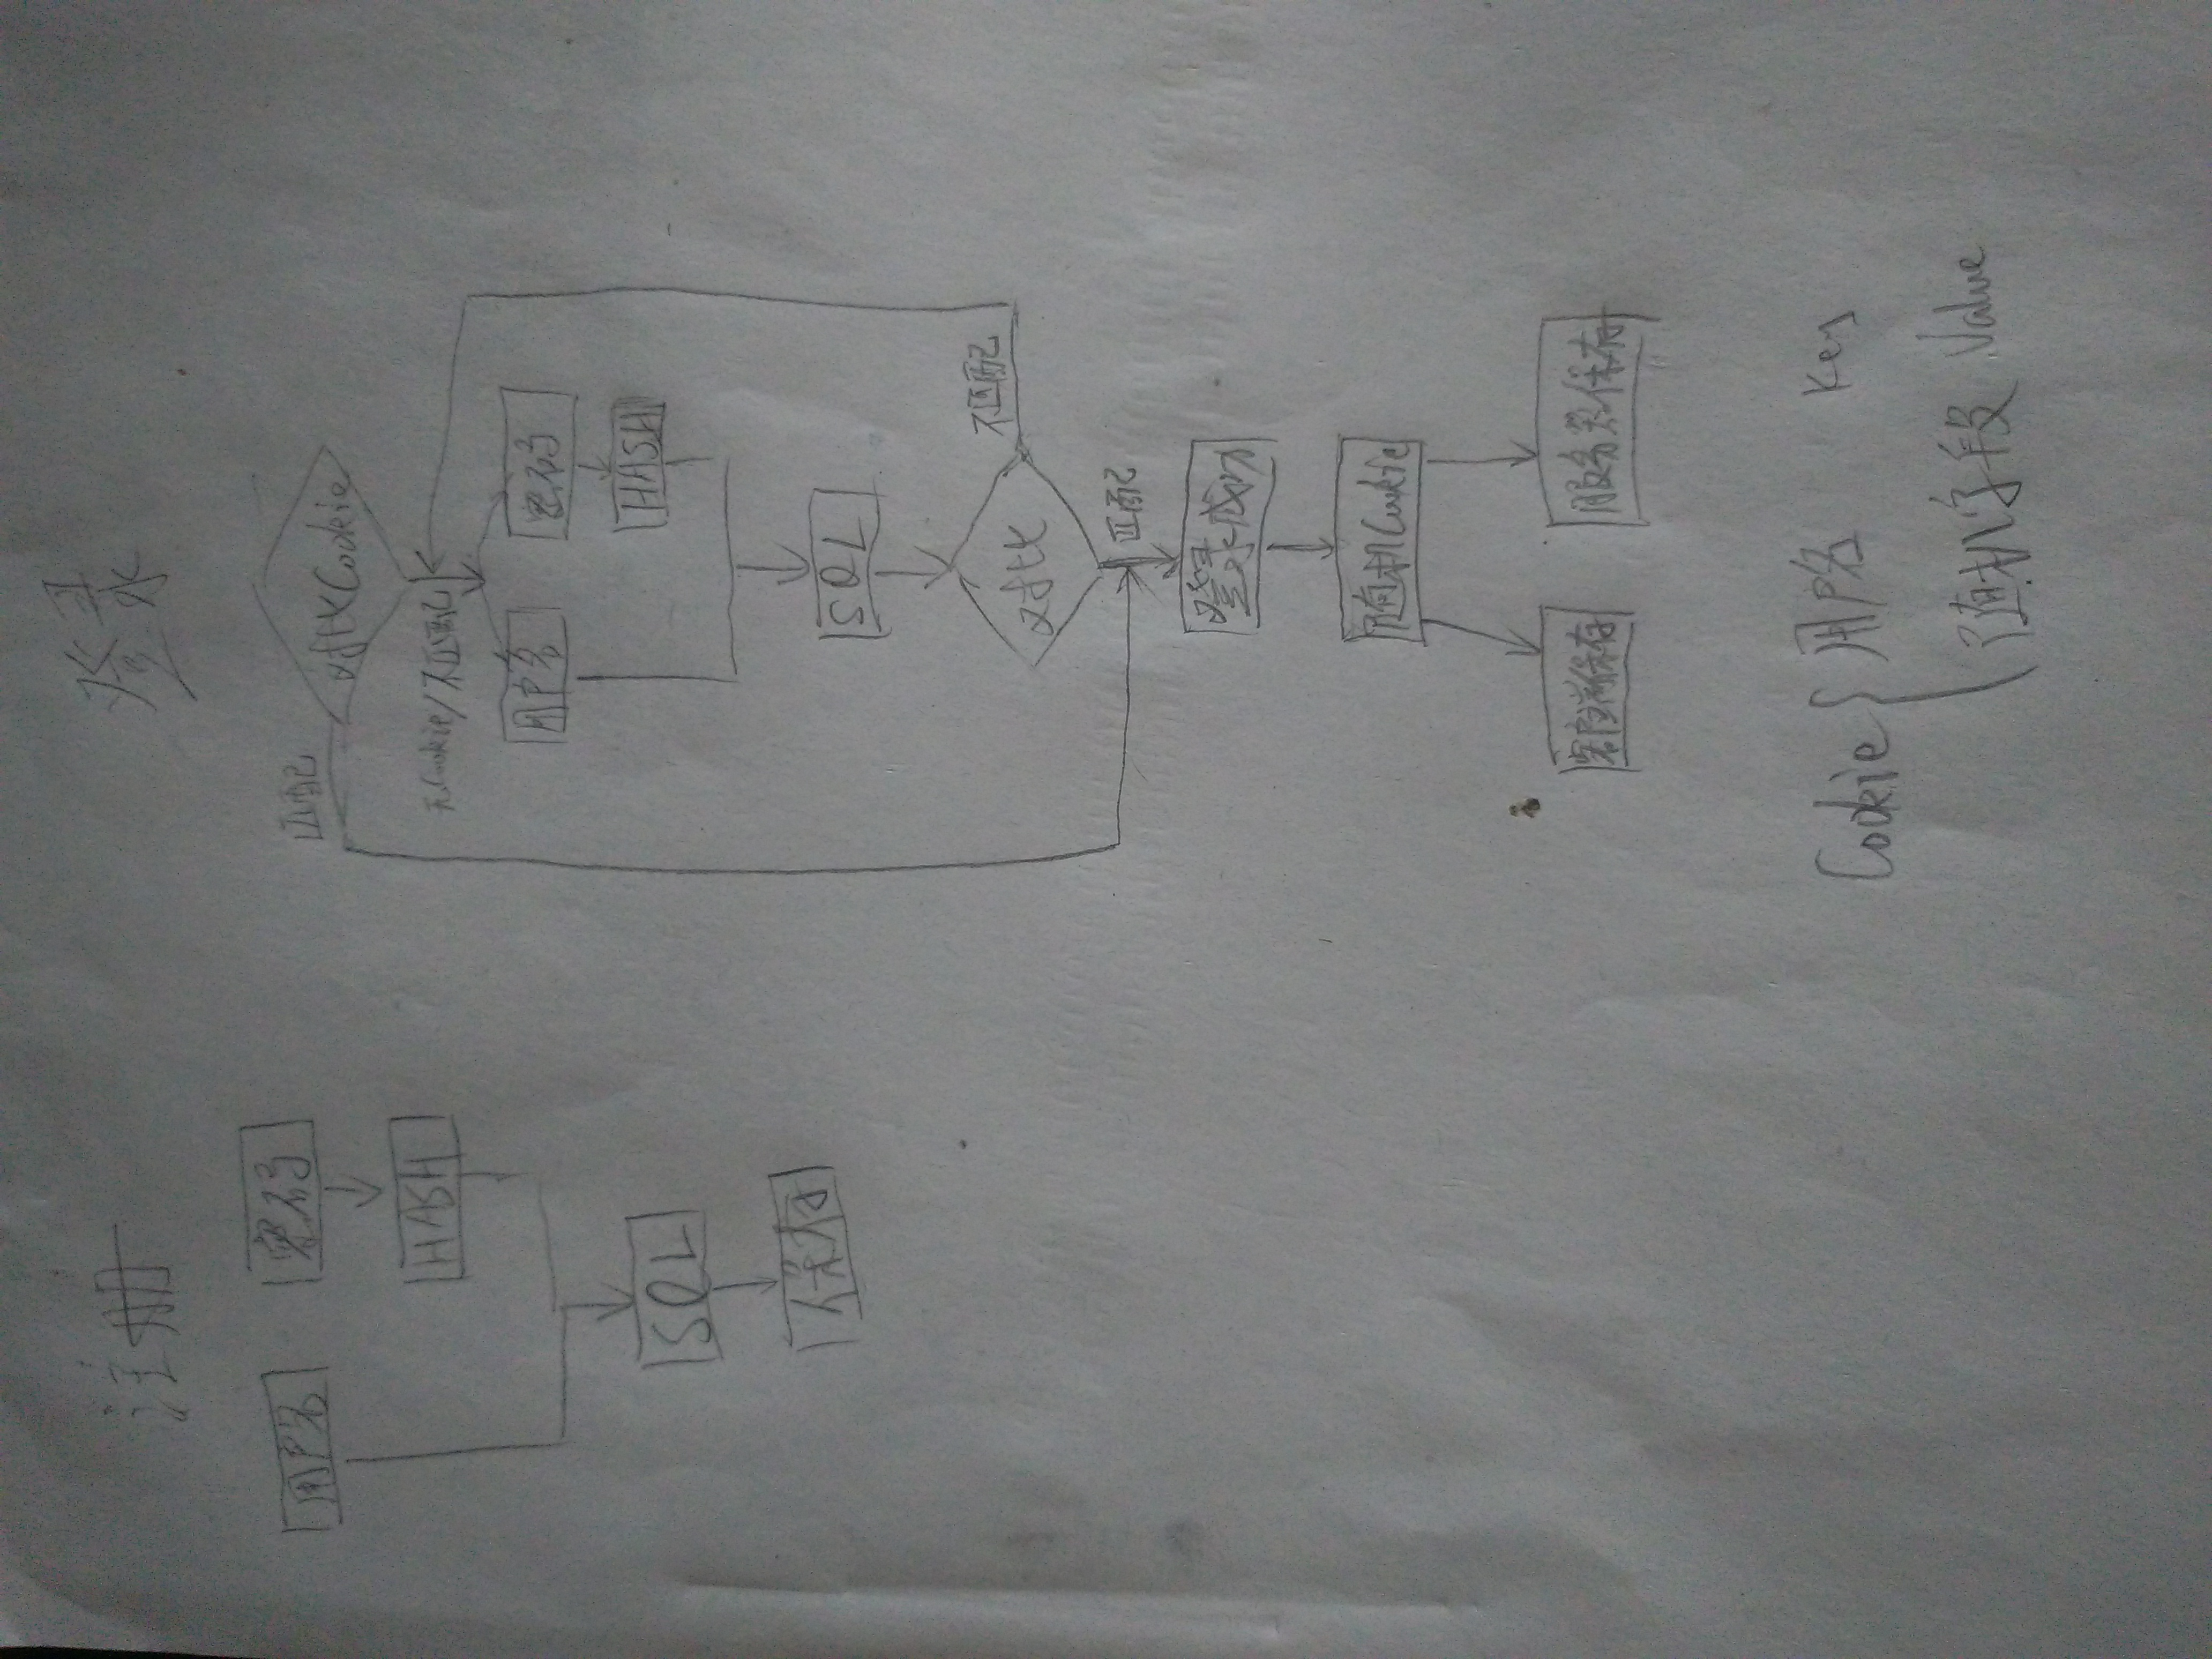 注册
用户名
密码
HASH
SQL
保存
登录
对比Cookie
匹配
无Cookie/不匹配
用户名
密码
HASH
SQL
对比
不匹配
匹配
登录成功
随机Cookie
客户端保存
服务器保存
Cookie
用户名 Key
随机字段 Value